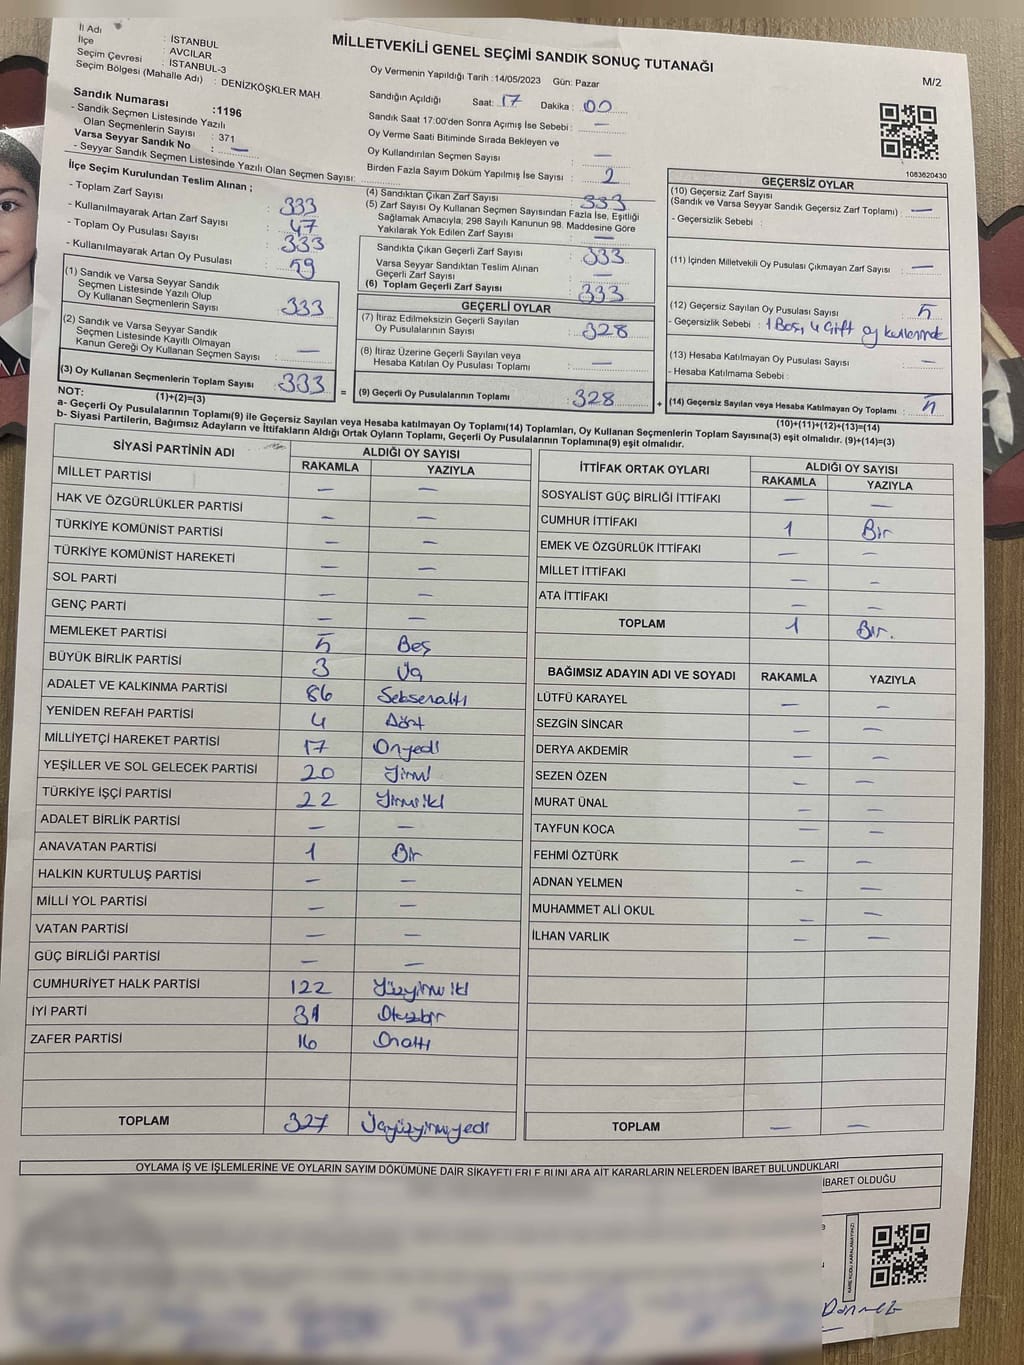 MİLLETVEKİLİ GENEL SEÇİMİ SANDIK SONUÇ TUTANAĞI
M/2
İl Adı : İSTANBUL
İlçe : AVCILAR
Seçim Çevresi : İSTANBUL-3
Seçim Bölgesi (Mahalle Adı) : DENİZKÖŞKLER MAH
Sandık Numarası :1196
- Sandık Seçmen Listesinde Yazılı
Olan Seçmenlerin Sayısı : 371
Varsa Seyyar Sandık No : —
- Seyyar Sandık Seçmen Listesinde Yazılı Olan Seçmen Sayısı:
Oy Vermenin Yapıldığı Tarih :14/05/2023 Gün: Pazar
Sandığın Açıldığı Saat: 17 Dakika : 00
Sandık Saat 17:00'den Sonra Açımış İse Sebebi : —
Oy Verme Saati Bitiminde Sırada Bekleyen ve
Oy Kullandırılan Seçmen Sayısı : —
Birden Fazla Sayım Döküm Yapılmış İse Sayısı : 2
1083620430
İlçe Seçim Kurulundan Teslim Alınan ;
- Toplam Zarf Sayısı : 333
- Kullanılmayarak Artan Zarf Sayısı : 47
- Toplam Oy Pusulası Sayısı : 333
- Kullanılmayarak Artan Oy Pusulası : 59
(1) Sandık ve Varsa Seyyar Sandık
Seçmen Listesinde Yazılı Olup
Oy Kullanan Seçmenlerin Sayısı : 333
(2) Sandık ve Varsa Seyyar Sandık
Seçmen Listesinde Kayıtlı Olmayan
Kanun Gereği Oy Kullanan Seçmen Sayısı : —
(3) Oy Kullanan Seçmenlerin Toplam Sayısı : 333
(1)+(2)=(3)
=
(4) Sandıktan Çıkan Zarf Sayısı : 333
(5) Zarf Sayısı Oy Kullanan Seçmen Sayısından Fazla İse, Eşitliği
Sağlamak Amacıyla, 298 Sayılı Kanunun 98. Maddesine Göre
Yakılarak Yok Edilen Zarf Sayısı : —
Sandıkta Çıkan Geçerli Zarf Sayısı : 333
Varsa Seyyar Sandıktan Teslim Alınan
Geçerli Zarf Sayısı : —
(6) Toplam Geçerli Zarf Sayısı : 333
GEÇERLİ OYLAR
(7) İtiraz Edilmeksizin Geçerli Sayılan
Oy Pusulalarının Sayısı : 328
(8) İtiraz Üzerine Geçerli Sayılan veya
Hesaba Katılan Oy Pusulası Toplamı : —
(9) Geçerli Oy Pusulalarının Toplamı : 328
+
GEÇERSİZ OYLAR
(10) Geçersiz Zarf Sayısı
(Sandık ve Varsa Seyyar Sandık Geçersiz Zarf Toplamı) : —
- Geçersizlik Sebebi :
(11) İçinden Milletvekili Oy Pusulası Çıkmayan Zarf Sayısı : —
(12) Geçersiz Sayılan Oy Pusulası Sayısı : 5
- Geçersizlik Sebebi : 1 Boş, 4 Çift oy
(13) Hesaba Katılmayan Oy Pusulası Sayısı : —
- Hesaba Katılmama Sebebi :
(14) Geçersiz Sayılan veya Hesaba Katılmayan Oy Toplamı : 5
(10)+(11)+(12)+(13)=(14)
NOT:
a- Geçerli Oy Pusulalarının Toplamı(9) ile Geçersiz Sayılan veya Hesaba katılmayan Oy Toplamı(14) Toplamları, Oy Kullanan Seçmenlerin Toplam Sayısına(3) eşit olmalıdır. (9)+(14)=(3)
b- Siyasi Partilerin, Bağımsız Adayların ve İttifakların Aldığı Ortak Oyların Toplamı, Geçerli Oy Pusulalarının Toplamına(9) eşit olmalıdır.
SİYASİ PARTİNİN ADI ALDIĞI OY SAYISI
RAKAMLA YAZIYLA
MİLLET PARTİSİ — —
HAK VE ÖZGÜRLÜKLER PARTİSİ — —
TÜRKİYE KOMÜNİST PARTİSİ — —
TÜRKİYE KOMÜNİST HAREKETİ — —
SOL PARTİ — —
GENÇ PARTİ — —
MEMLEKET PARTİSİ 5 Beş
BÜYÜK BİRLİK PARTİSİ 3 Üç
ADALET VE KALKINMA PARTİSİ 86 Seksenaltı
YENİDEN REFAH PARTİSİ 4 Dört
MİLLİYETÇİ HAREKET PARTİSİ 17 Onyedi
YEŞİLLER VE SOL GELECEK PARTİSİ 20 Yirmi
TÜRKİYE İŞÇİ PARTİSİ 22 Yirmiiki
ADALET BİRLİK PARTİSİ — —
ANAVATAN PARTİSİ 1 Bir
HALKIN KURTULUŞ PARTİSİ — —
MİLLİ YOL PARTİSİ — —
VATAN PARTİSİ — —
GÜÇ BİRLİĞİ PARTİSİ — —
CUMHURİYET HALK PARTİSİ 122 Yüzyirmi iki
İYİ PARTİ 31 Otuzbir
ZAFER PARTİSİ 16 Onaltı
TOPLAM 327 Üçyüzyirmiyedi
İTTİFAK ORTAK OYLARI ALDIĞI OY SAYISI
RAKAMLA YAZIYLA
SOSYALİST GÜÇ BİRLİĞİ İTTİFAKI — —
CUMHUR İTTİFAKI 1 Bir
EMEK VE ÖZGÜRLÜK İTTİFAKI — —
MİLLET İTTİFAKI — —
ATA İTTİFAKI — —
TOPLAM 1 Bir.
BAĞIMSIZ ADAYIN ADI VE SOYADI RAKAMLA YAZIYLA
LÜTFÜ KARAYEL — —
SEZGİN SİNCAR — —
DERYA AKDEMİR — —
SEZEN ÖZEN — —
MURAT ÜNAL — —
TAYFUN KOCA — —
FEHMİ ÖZTÜRK — —
ADNAN YELMEN - —
MUHAMMET ALİ OKUL — —
İLHAN VARLIK — —
TOPLAM — —
OYLAMA İŞ VE İŞLEMLERİNE VE OYLARIN SAYIM DÖKÜMÜNE DAİR ŞİKAYETLER İLE BUNLARA AİT KARARLARIN NELERDEN İBARET BULUNDUKLARI
İBARET OLDUĞU